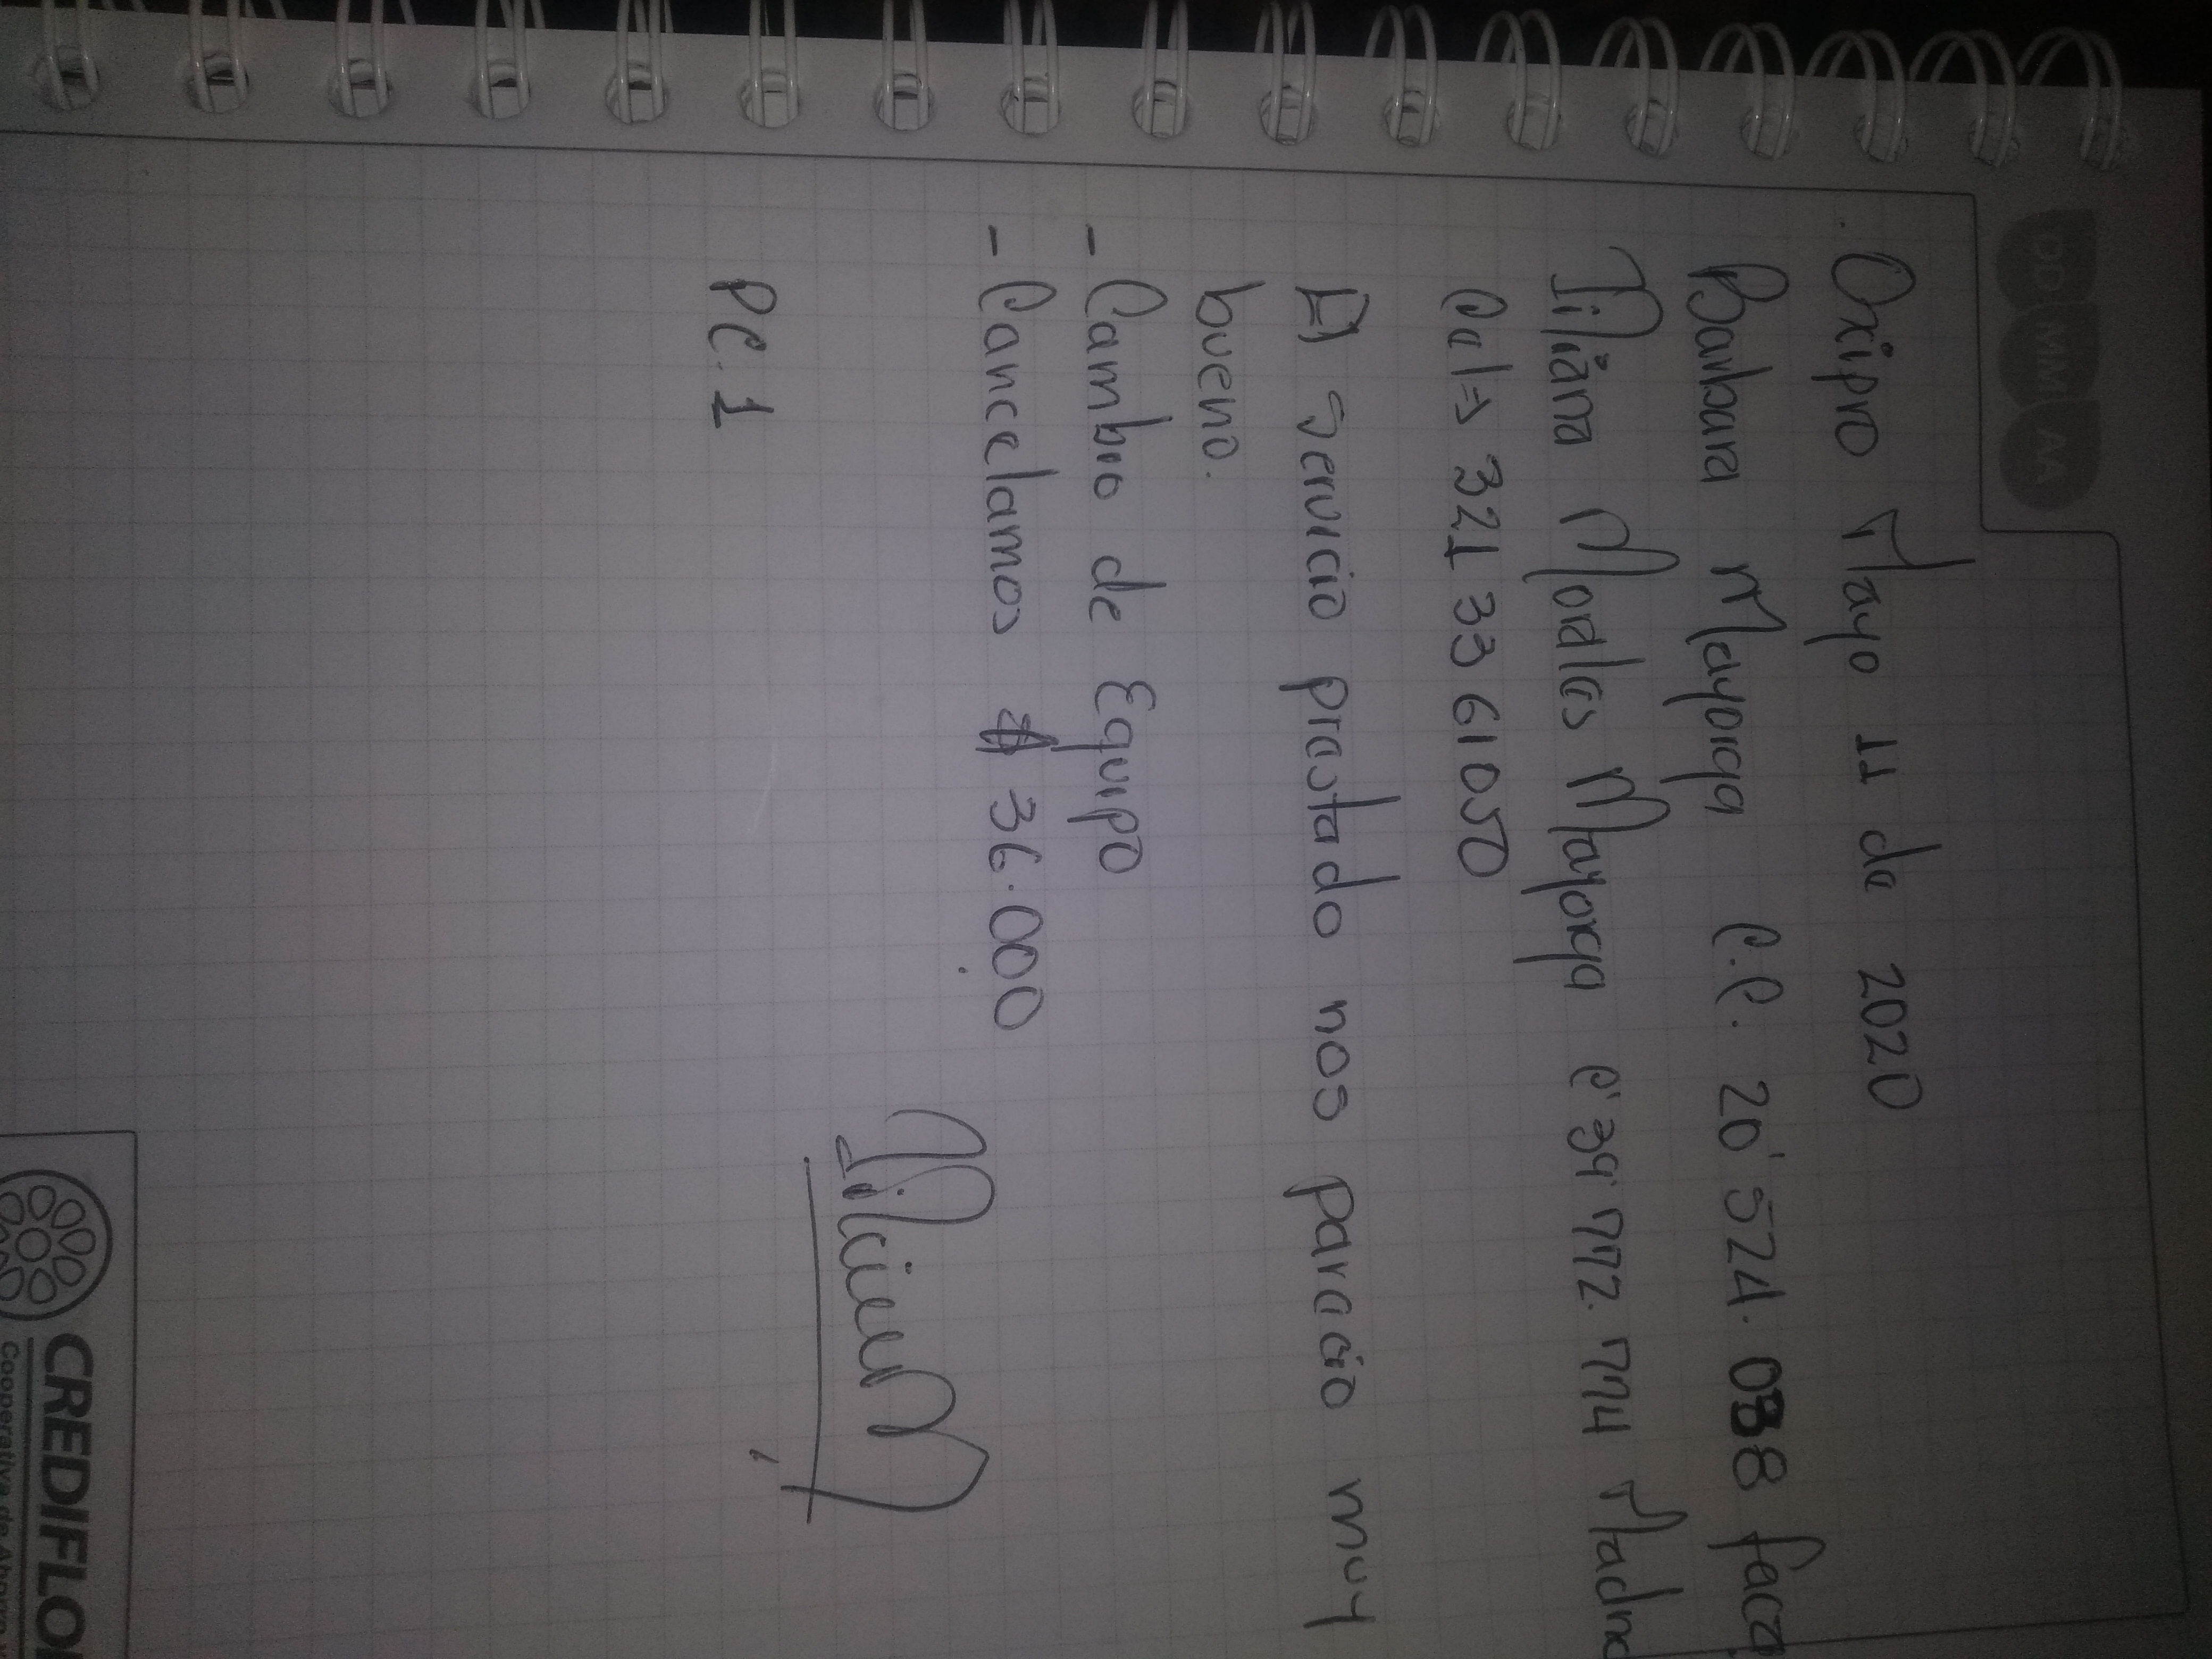 DD MM AA
Oxipro Mayo 11 de 2020
Barbara Mayorga C.C. 20'524.038 faca
Liliana Morales Mayorga C' 39'772.774 Madrid
Cel => 321 33 61050
El servicio prestado nos parecio muy
bueno.
- Cambio de Equipo
- Cancelamos $ 36.000
PC.1
CREDIFLO
Cooperativa de Ahorro